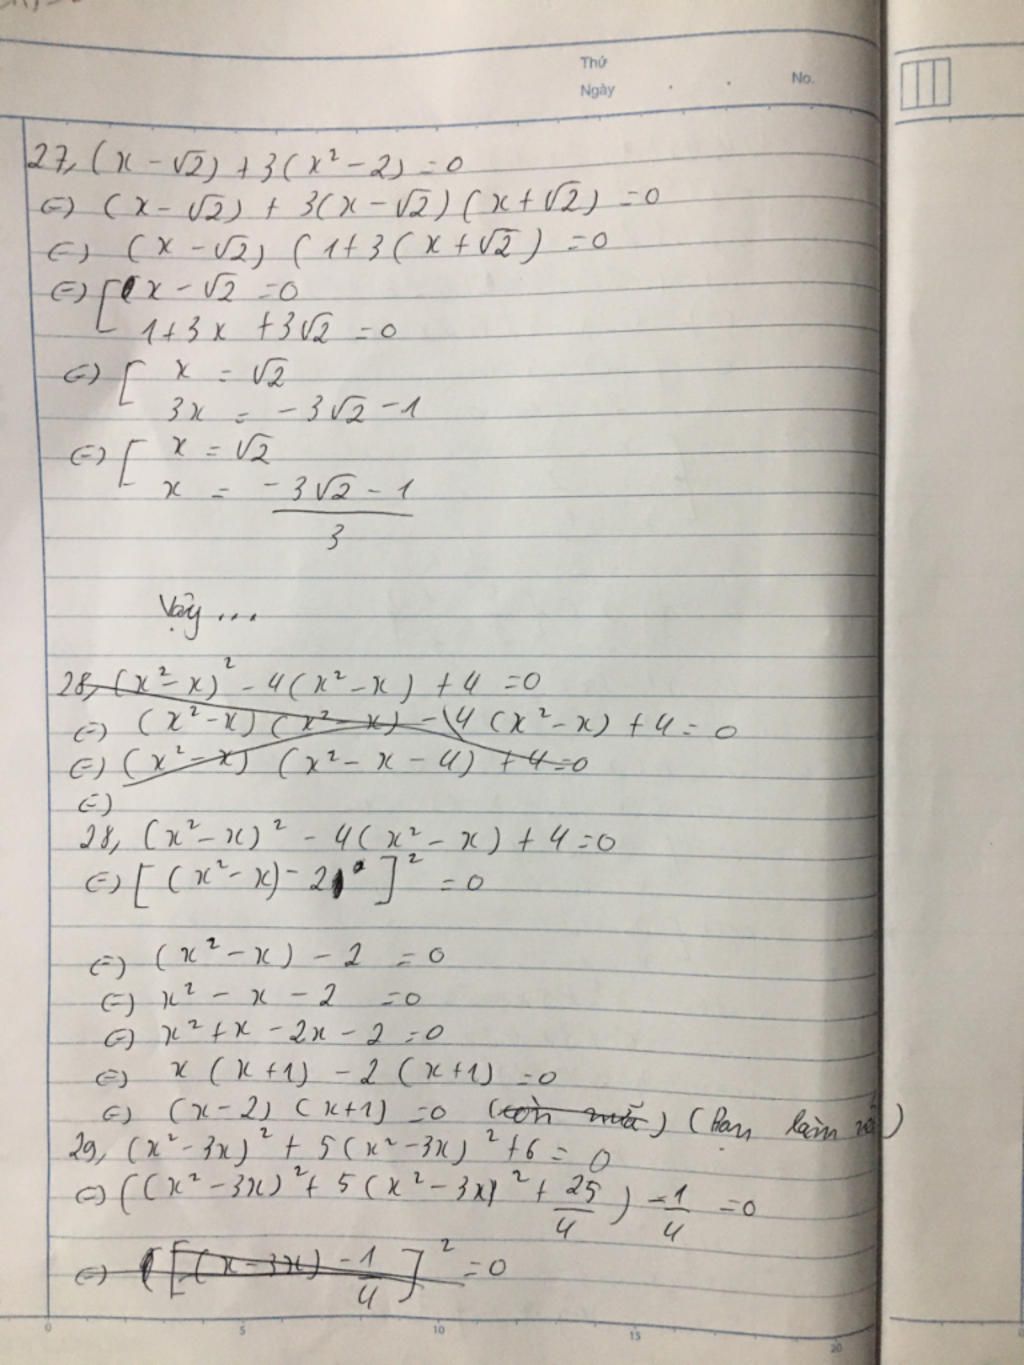 Thứ
Ngày . . No.
27, (x - √2) + 3(x² - 2) = 0
(=) (x - √2) + 3(x - √2)(x + √2) = 0
(=) (x - √2) (1 + 3(x + √2) = 0
(=) [ x - √2 = 0
1 + 3x + 3√2 = 0
(=) [ x = √2
3x = -3√2 - 1
(=) [ x = √2
x = (-3√2 - 1)/3
Vậy ...
28, (x² - x)² - 4(x² - x) + 4 = 0
(=) (x² - x) (x² - x) - 4(x² - x) + 4 = 0
(=) (x² - x) (x² - x - 4) + 4 = 0
(=)
28, (x² - x)² - 4(x² - x) + 4 = 0
(=) [(x² - x) - 2]² = 0
(=) (x² - x) - 2 = 0
(=) x² - x - 2 = 0
(=) x² + x - 2x - 2 = 0
(=) x(x + 1) - 2(x + 1) = 0
(=) (x - 2)(x + 1) = 0 (làm
29, (x² - 3x)² + 5(x² - 3x)² + 6 = 0
(=) ((x² - 3x)² + 5(x² - 3x)² + 25/4) - 1/4 = 0
(=) [(x - 3x) - 1/4]² = 0
0 5 10 15 20